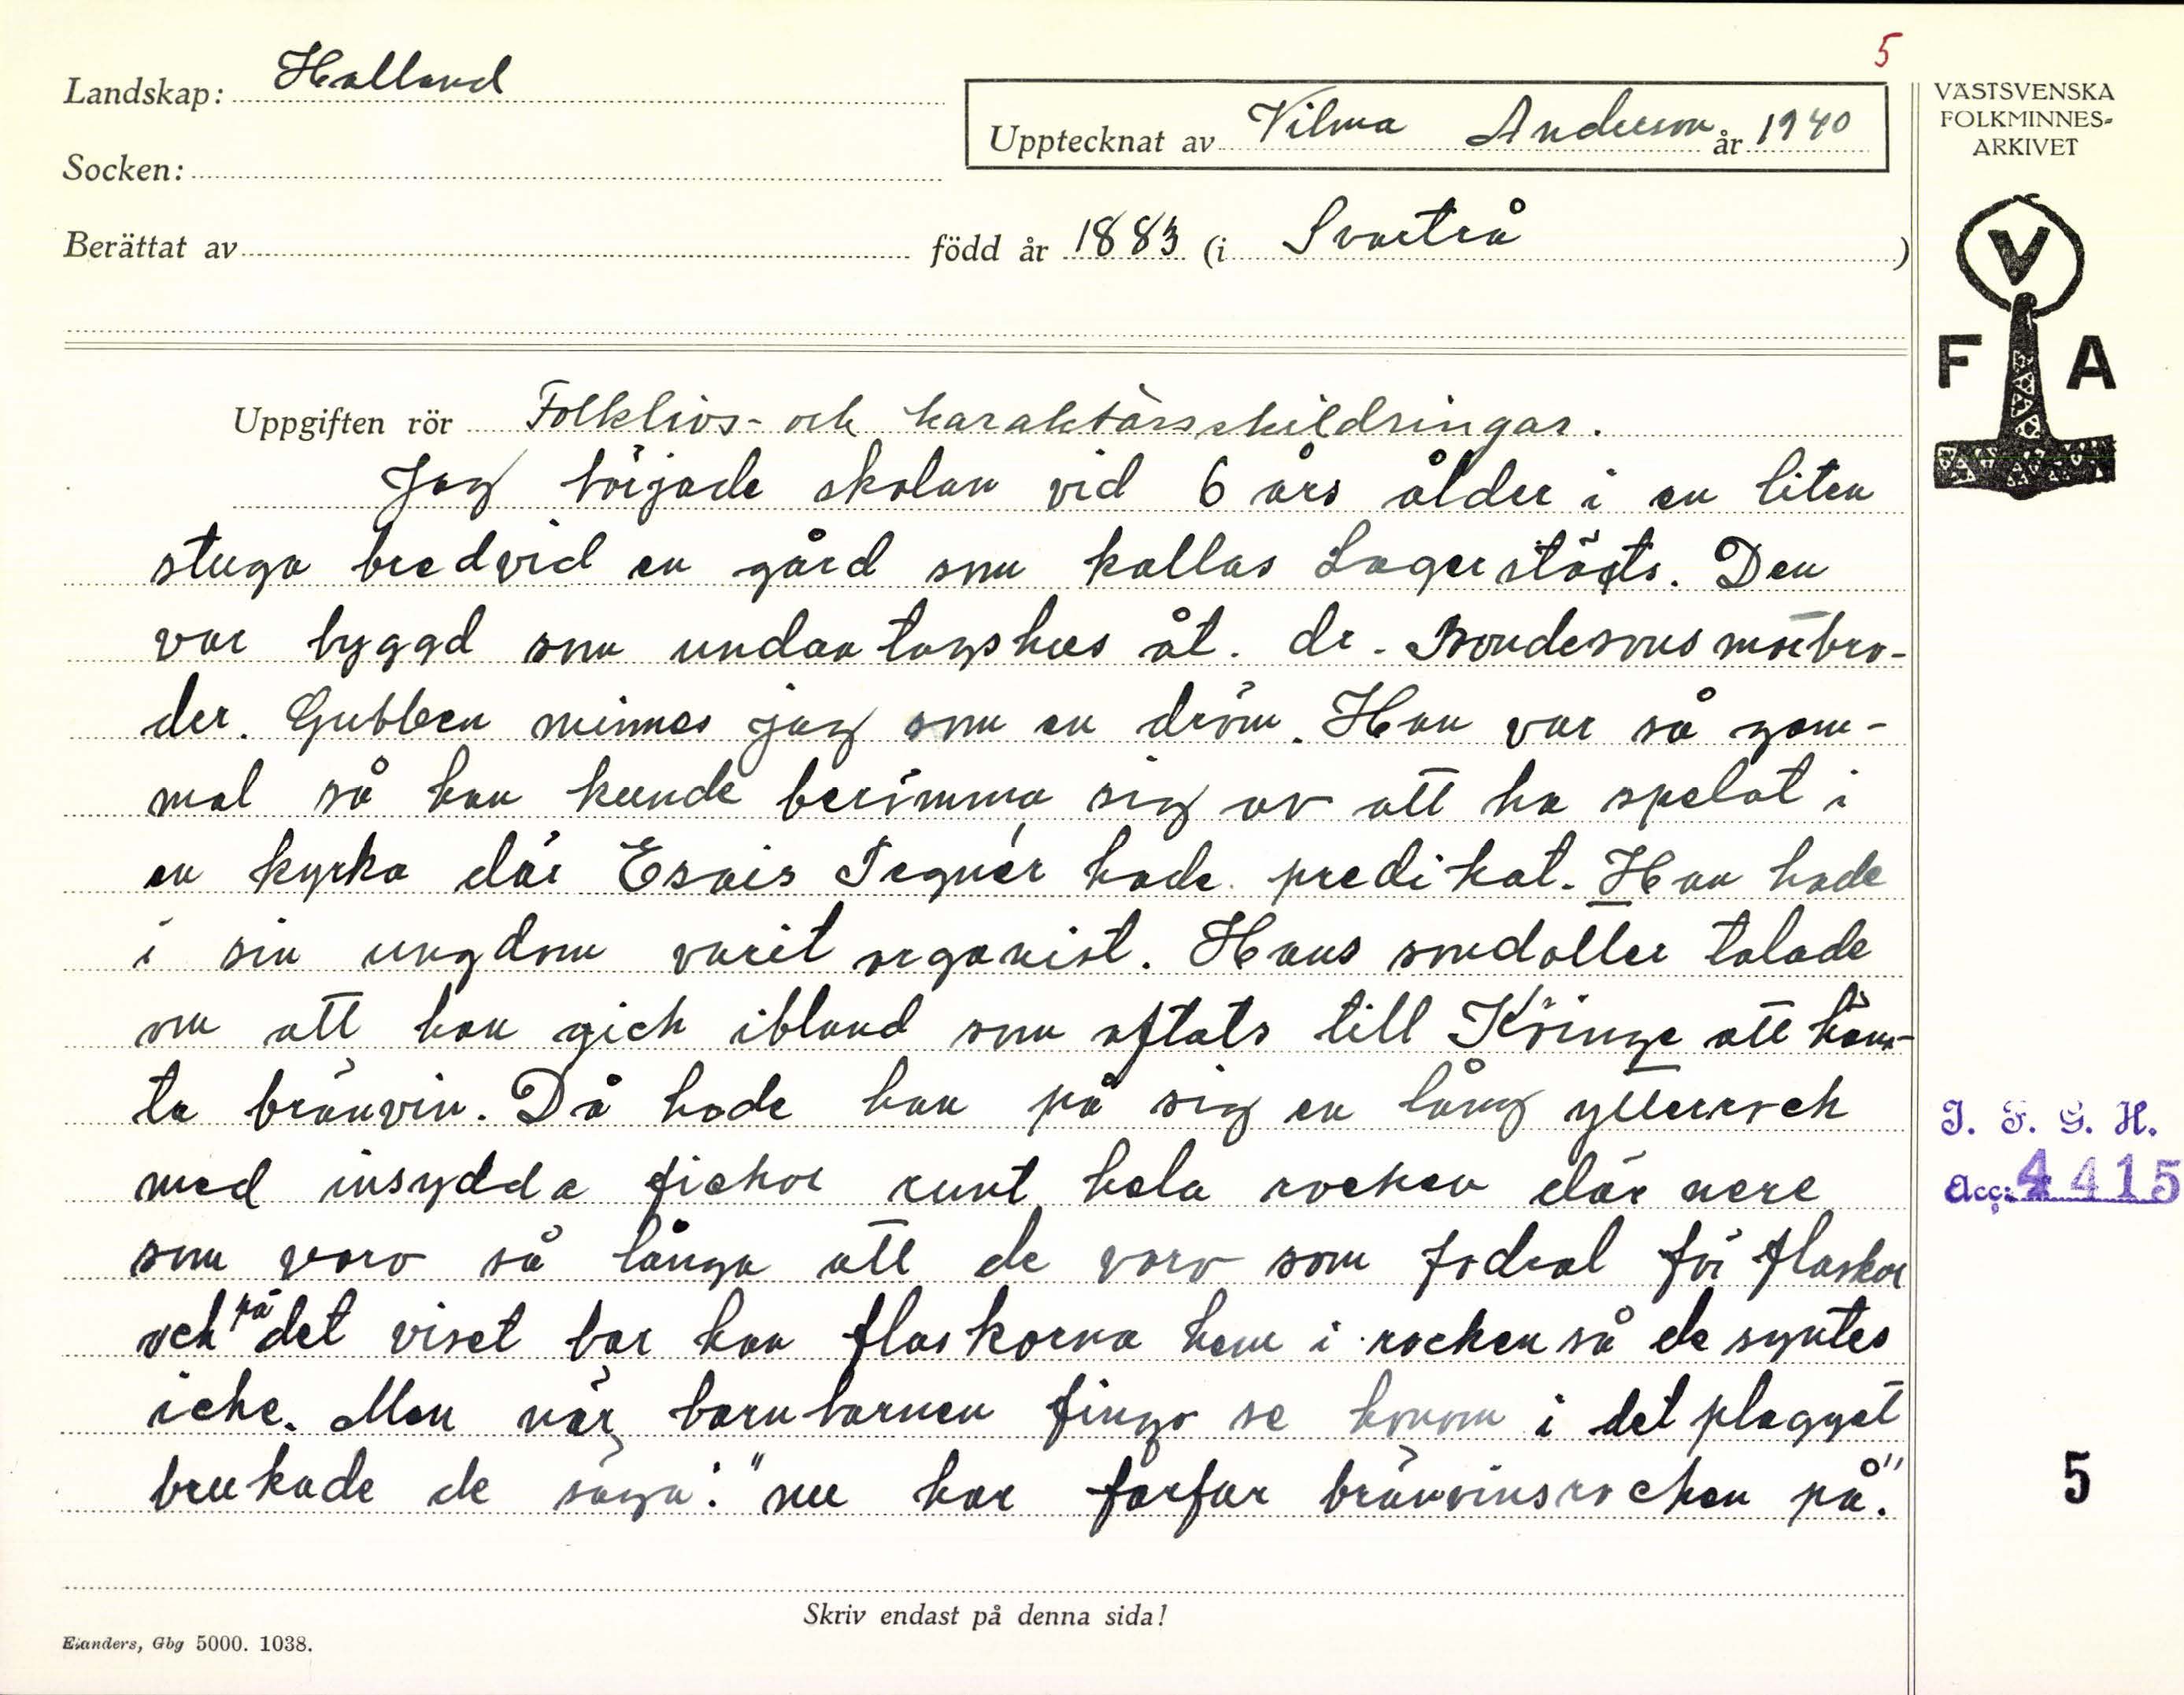 5
Landskap: Halland
Upptecknat av Vilma Anderson år 1940
Socken:
Berättat av född år 1883 (i Svartrå )
VÄSTSVENSKA
FOLKMINNES-
ARKIVET
V
F A
Uppgiften rör Folklivs- och karaktärsskildringar.
Jag började skolan vid 6 års ålder i en liten
stuga bredvid en gård som kallas Lagerstöfts. Den
var byggd som undantagshus åt. dr. Bondesons morbro-
der. Gubben minnes jag som en dröm. Han var så gam-
mal så han kunde berömma sig av att ha spelat i
en kyrka där Esais Tegnér hade predikat. Han hade
i sin ungdom varit organist. Hans sondotter talade
om att han gick ibland som oftats till Köinge att häm-
ta bränvin. Då hade han på sig en lång ytterrock
med insydda fickor runt hela rocken där nere
som voro så långa att de voro som fodral för flaskor
och på det viset bar han flaskorna hem i rocken så de syntes
icke. Men när barnbarnen fingo se honom i det plagget
brukade de säga: "nu har farfar brännvinsrocken på."
J. F. G. H.
Acc: 4415
5
Skriv endast på denna sida!
Elanders, Gbg 5000. 1038.